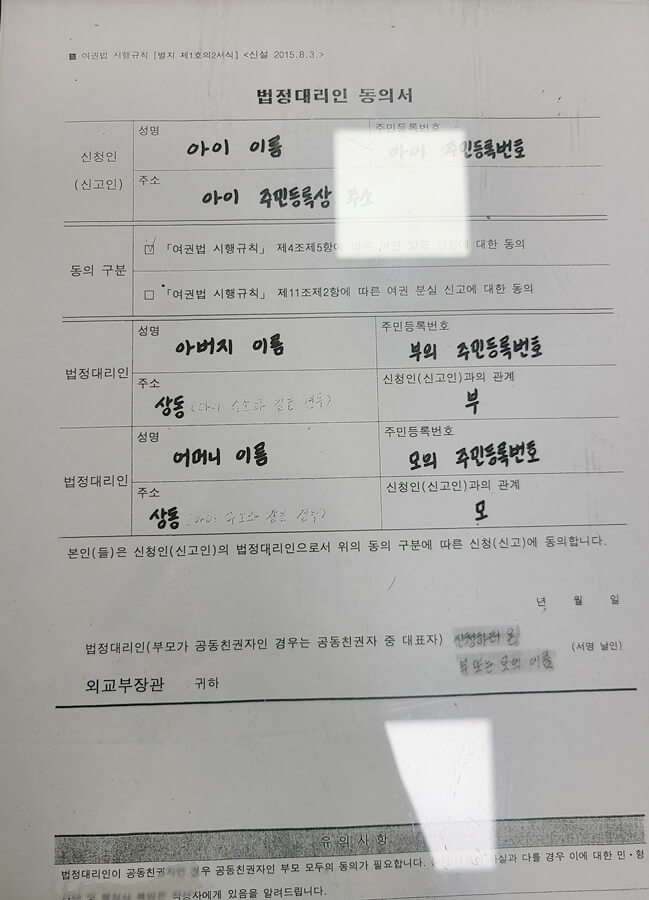 여권법 시행규칙 [별지 제1호의2서식] <신설 2015.8.3.>
법정대리인 동의서
신청인
(신고인)
성명
아이 이름
주민등록번호
아이 주민등록번호
주소
아이 주민등록상 주소
동의 구분
☑ 「여권법 시행규칙」 제4조제5항에 따른 여권 발급 신청에 대한 동의
□ 「여권법 시행규칙」 제11조제2항에 따른 여권 분실 신고에 대한 동의
법정대리인
성명
아버지 이름
주민등록번호
부의 주민등록번호
주소
상동 (아이 주소와 같은 경우)
신청인(신고인)과의 관계
부
법정대리인
성명
어머니 이름
주민등록번호
모의 주민등록번호
주소
상동 (아이 주소와 같은 경우)
신청인(신고인)과의 관계
모
본인(들)은 신청인(신고인)의 법정대리인으로서 위의 동의 구분에 따른 신청(신고)에 동의합니다.
년 월 일
법정대리인(부모가 공동친권자인 경우는 공동친권자 중 대표자) 신청하러 온
부 또는 모의 이름 (서명 날인)
외교부장관 귀하
유의사항
법정대리인이 공동친권자인 경우 공동친권자인 부모 모두의 동의가 필요합니다. 사실과 다를 경우 이에 대한 민·형
책임은 작성자에게 있음을 알려드립니다.